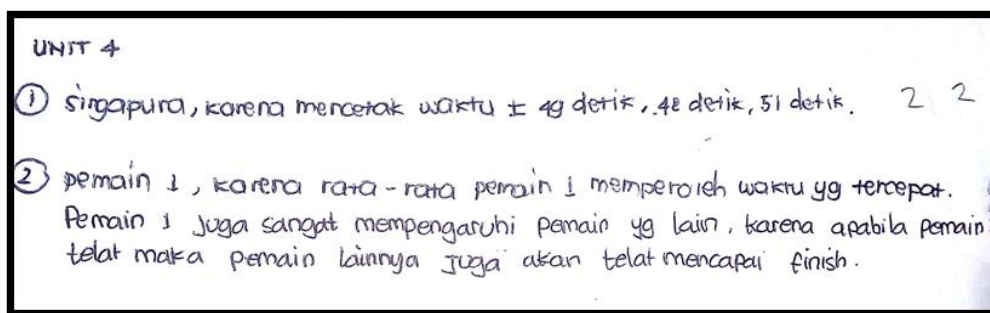 UNIT 4
① Singapura, karena mencetak waktu ± 49 detik, 48 detik, 51 detik. 2 2
② Pemain 1, karena rata-rata pemain 1 memperoleh waktu yg tercepat.
Pemain 1 juga sangat mempengaruhi pemain yg lain, karena apabila pemain
telat maka pemain lainnya juga akan telat mencapai finish.